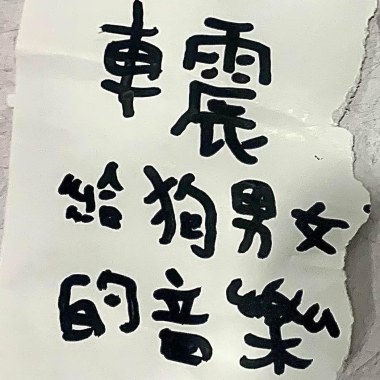 車震
給狗男女
的音樂